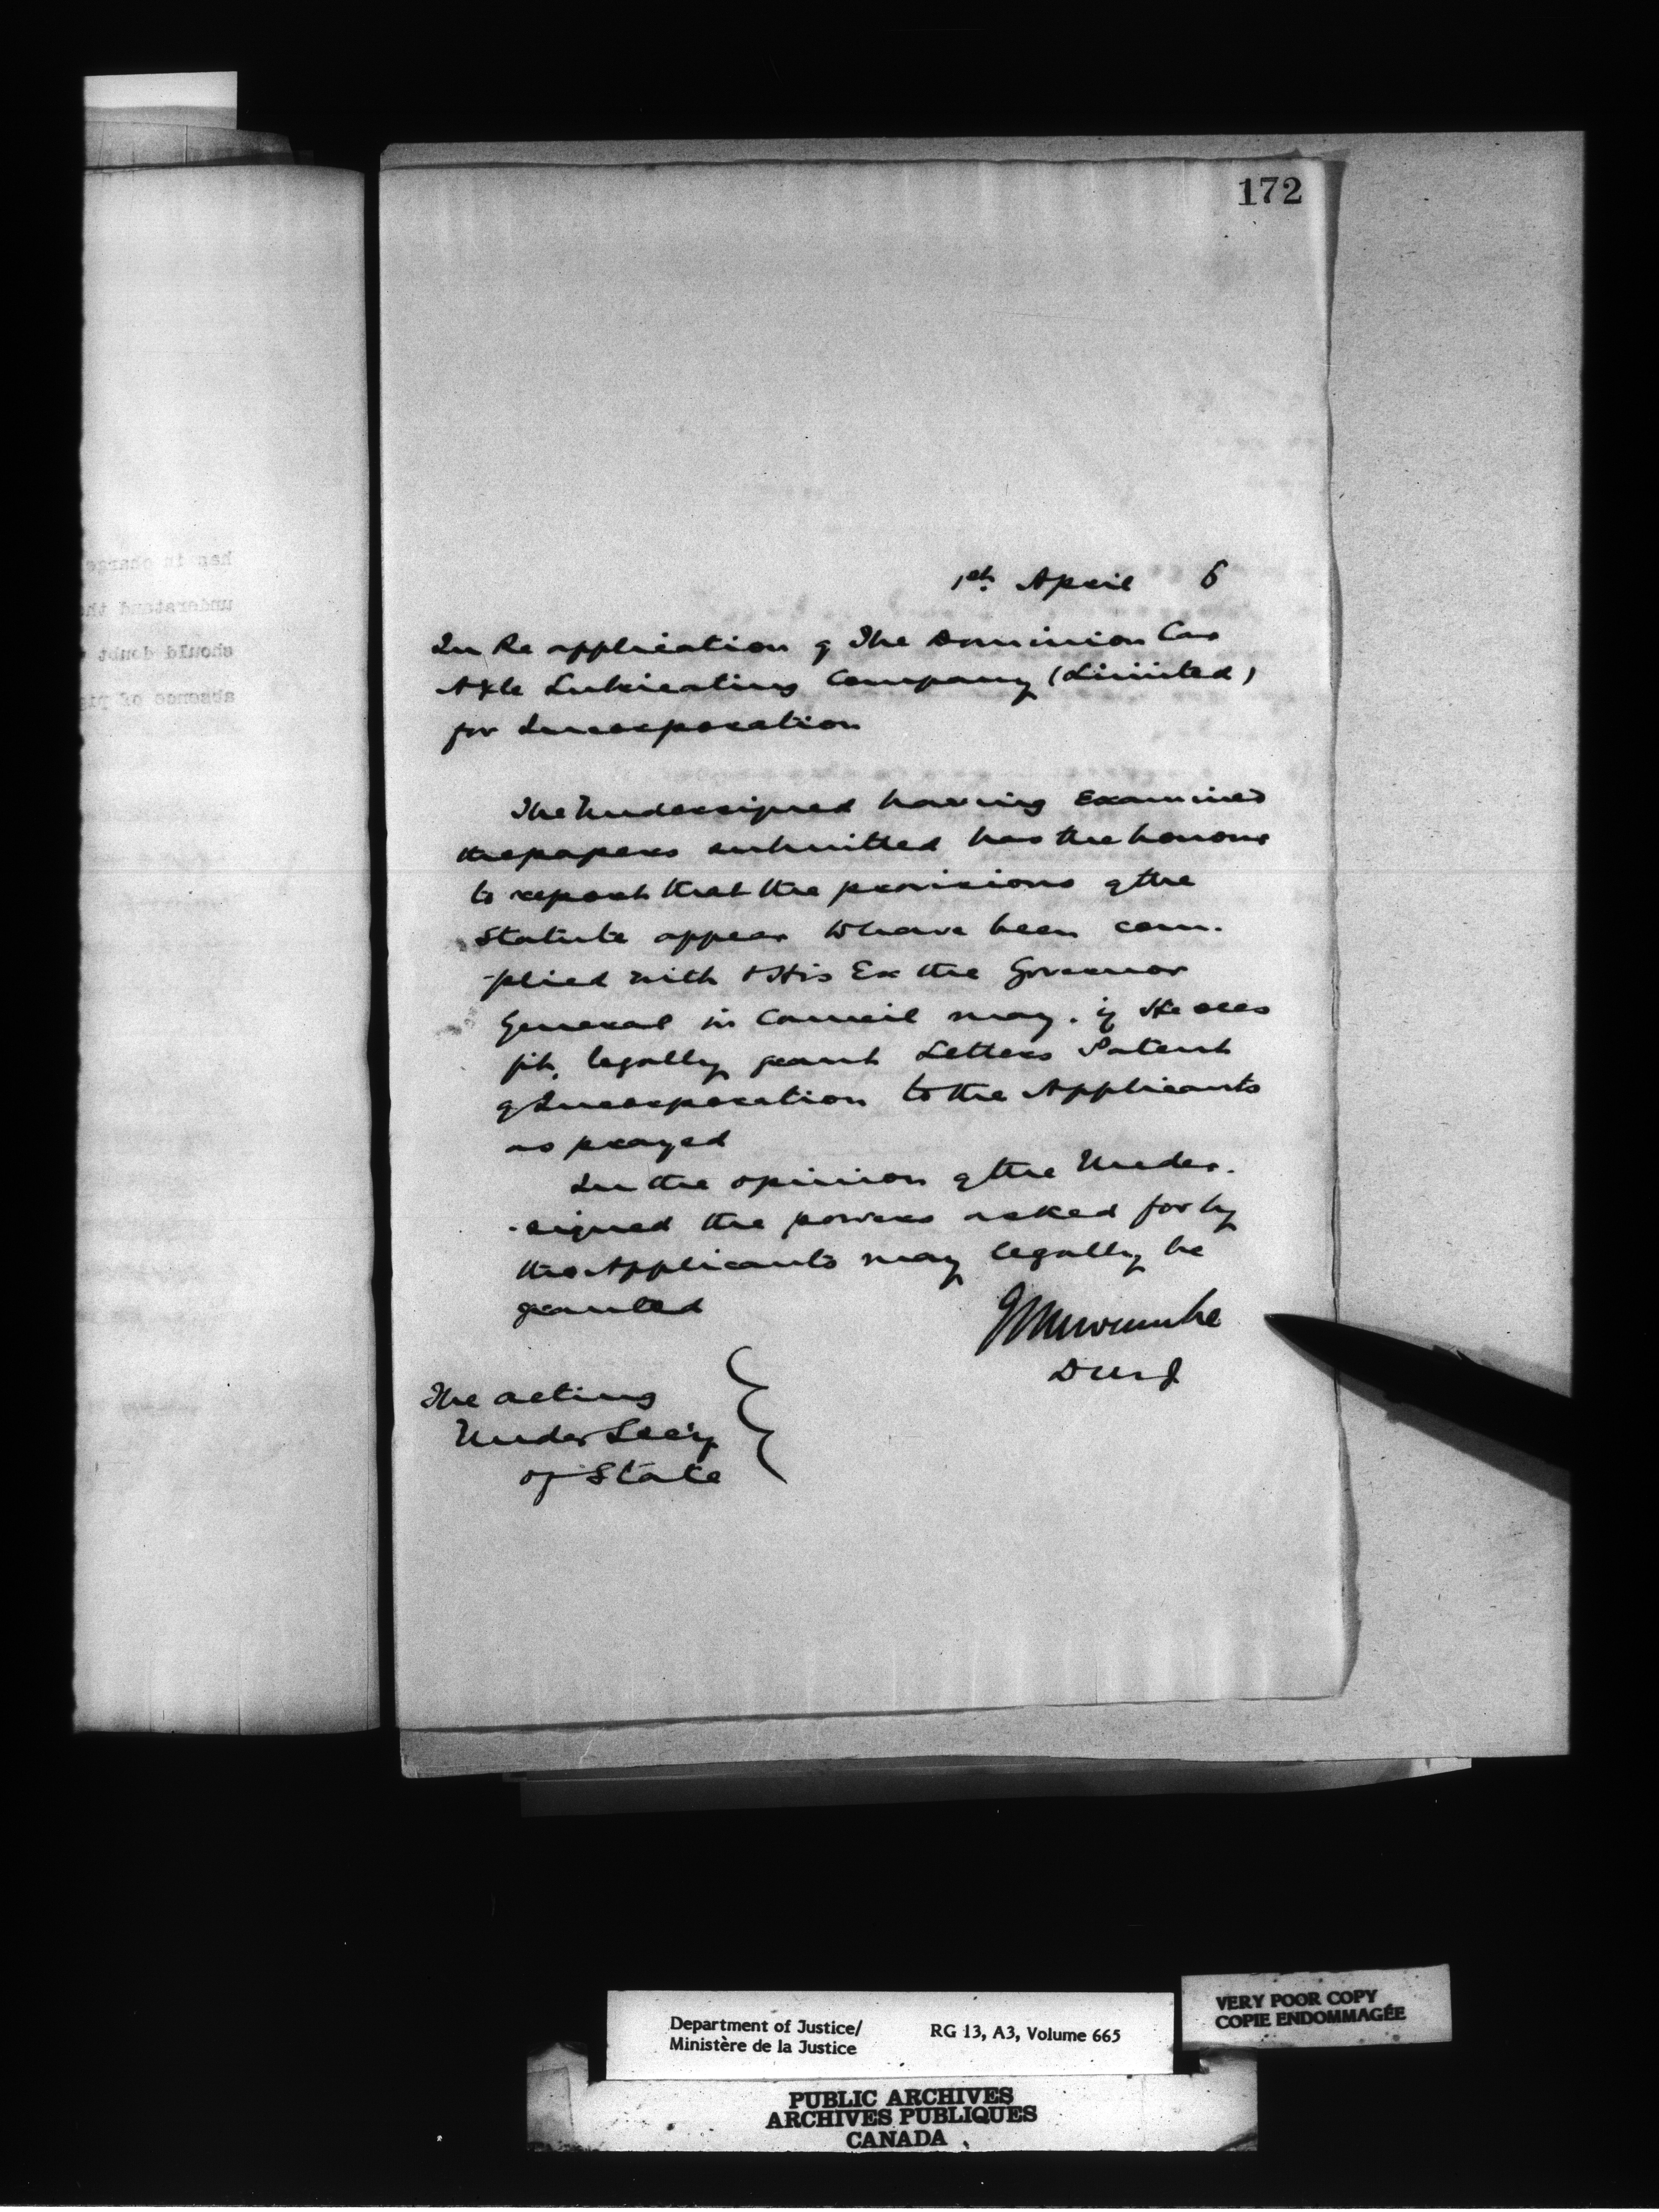 172
1st April 6
In Re application of The Dominion Car
Axle Lubricating Company (Limited)
for Incorporation
The Undersigned having Examined
the papers submitted has the honour
to report that the provisions of the
Statute appear to have been com-
-plied with & His Ex the Governor
General in Council may. if He sees
fit, legally grant Letters Patent
of Incorporation to the Applicants
as prayed
In the opinion of the Under-
-signed the powers asked for by
the Applicants may legally be
granted
Newcombe
DMJ
The acting
Under Secy
of State
her in charge
understand th
should doubt
absence of
Department of Justice/
Ministère de la Justice
RG 13, A3, Volume 665
VERY POOR COPY
COPIE ENDOMMAGÉE
PUBLIC ARCHIVES
ARCHIVES PUBLIQUES
CANADA